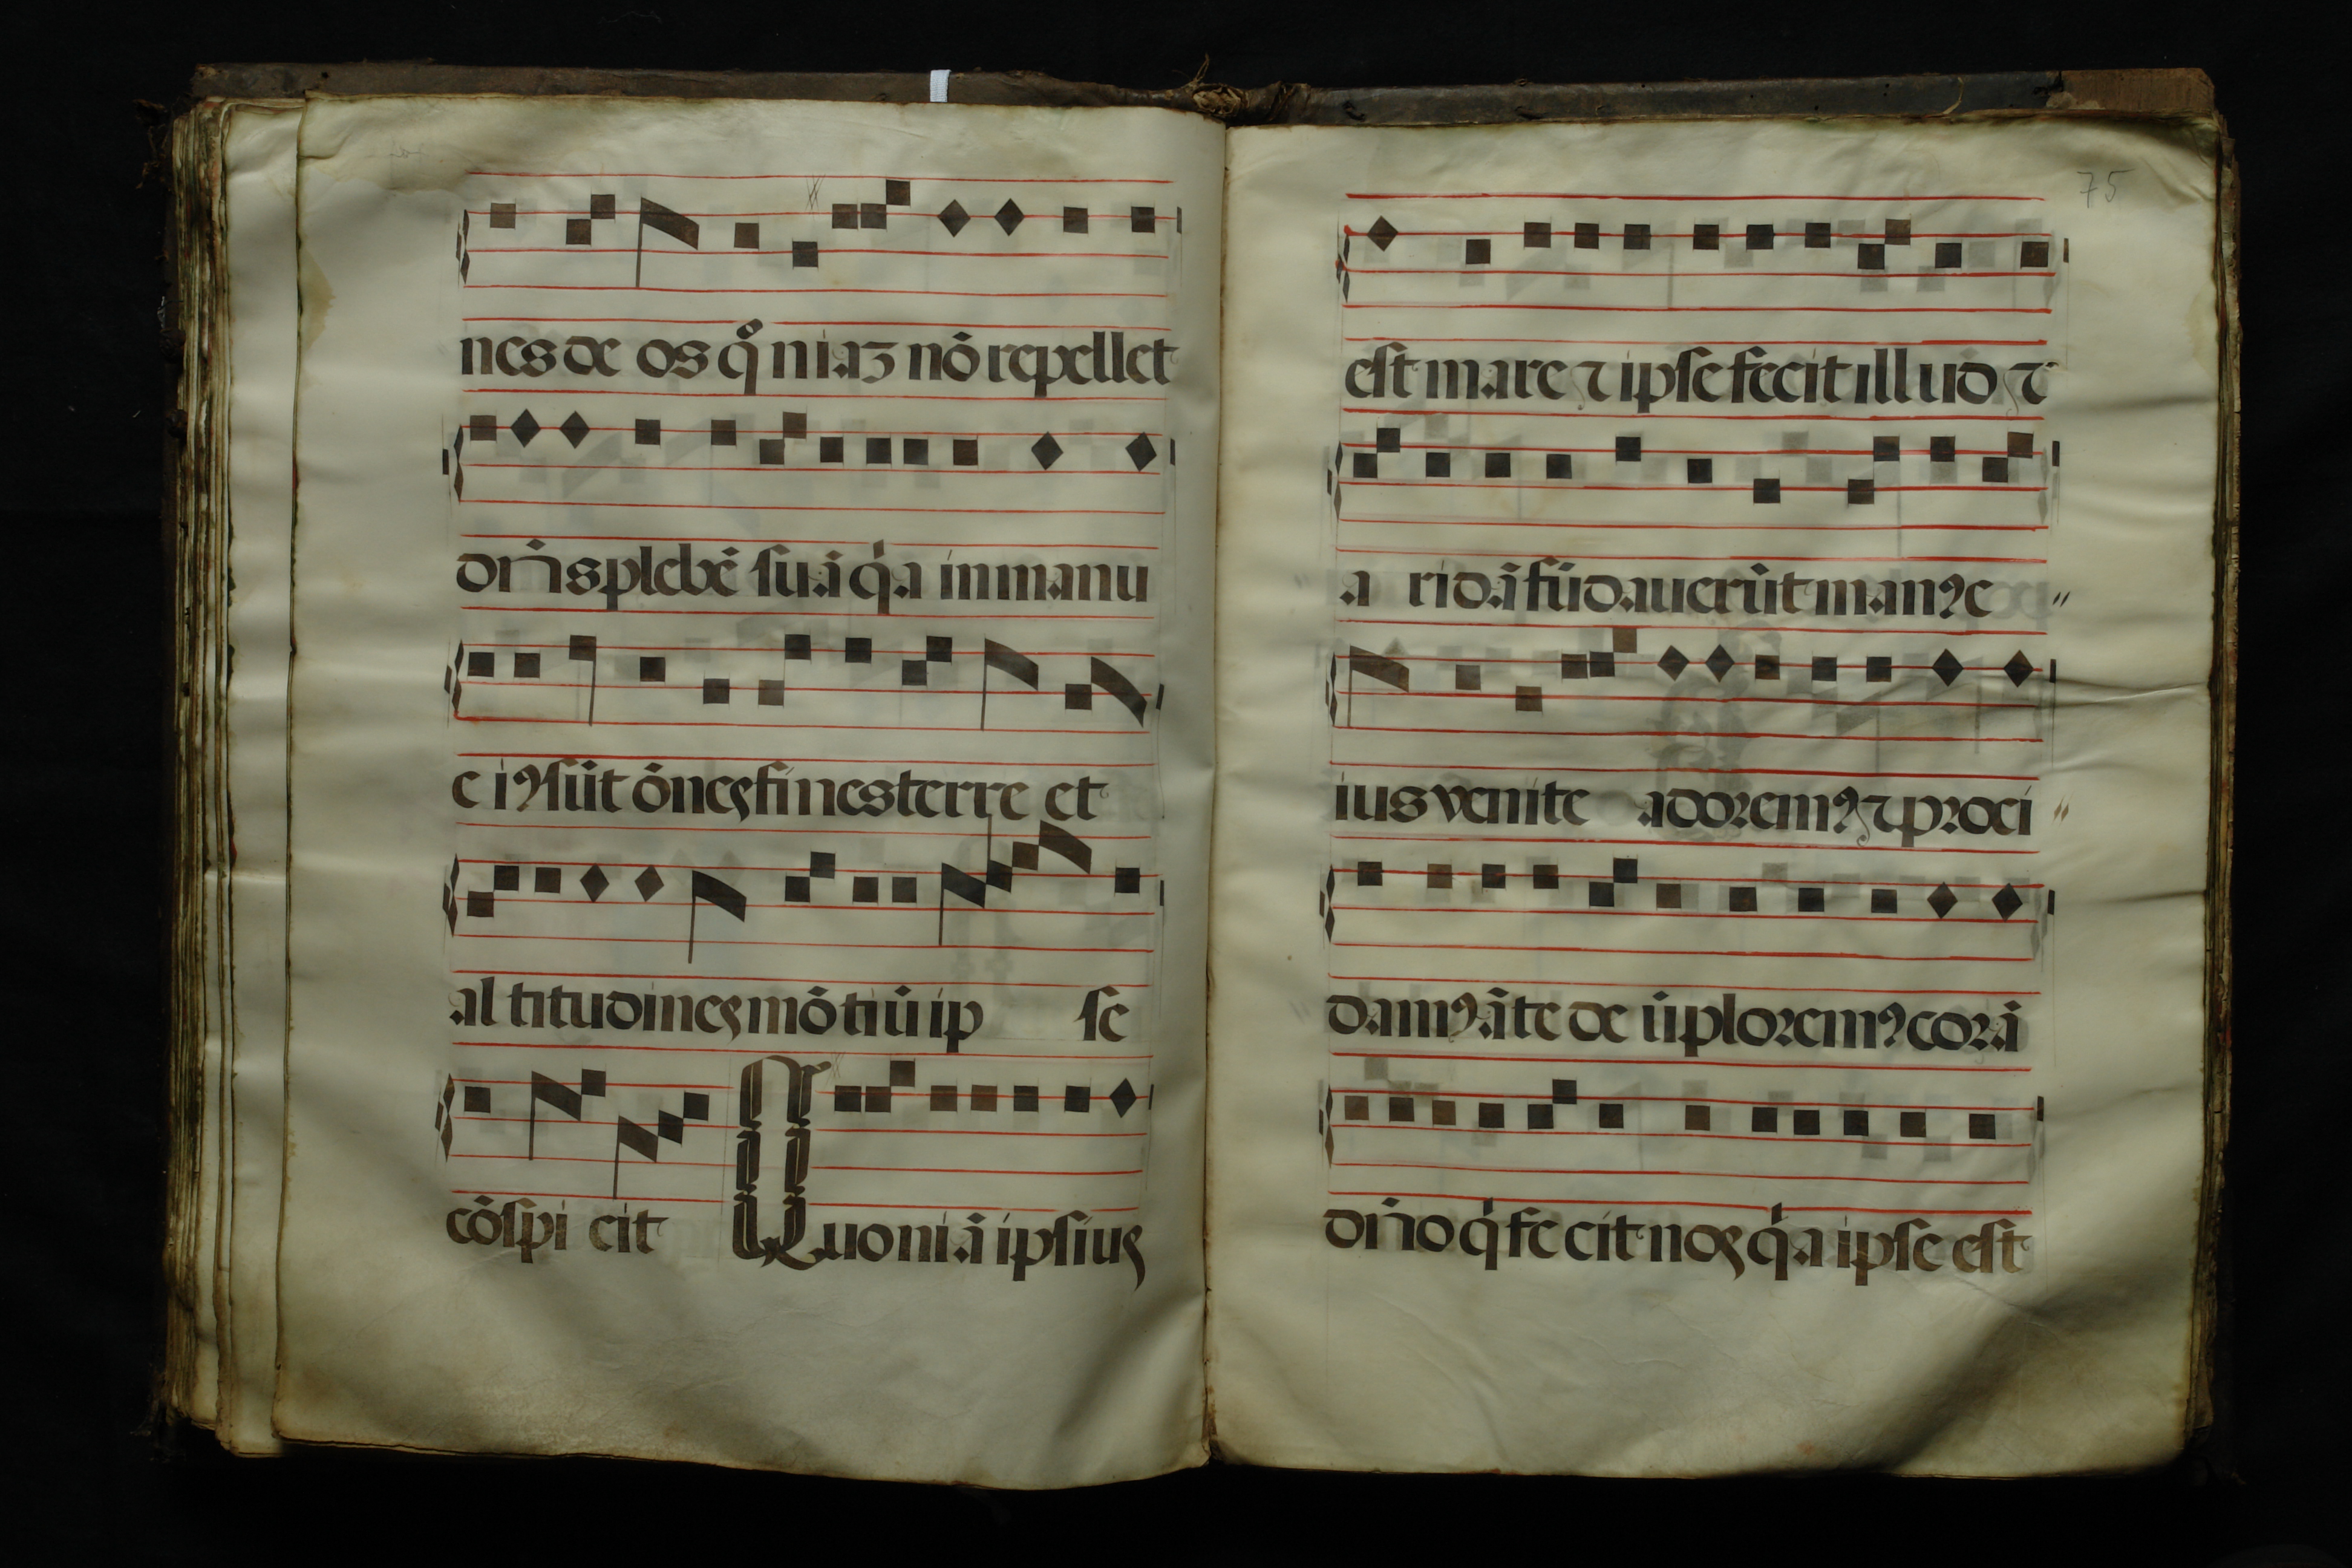 nes de os qͦ niaꝫ nō repellet
dn̄s plebē suā q̇a in manu
e iꝰ sūt ōnes fines terre et
al titudines mōtiū ip se
cōspi cit Quoniā ipsius
75
est mare ⁊ ipse fecit illud ⁊
a ridā fūdauerūt manꝰ e〃
ius venite adoremꝰ ⁊ proci〃
damꝰ āte de ūploremꝰ corā
dn̄o q̇ fe cit nos q̇a ipse est